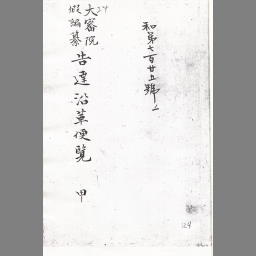 和第七百廿五號ノ
大審院
假編纂
24
告達沿革便覧 甲
124